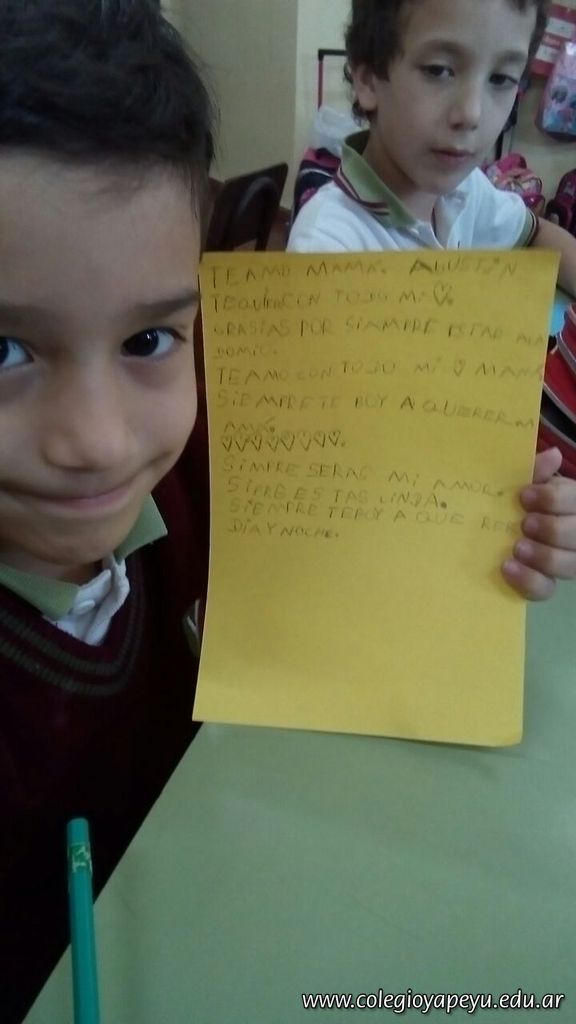 TEAMO MAMÁ. AGUSTÍN
TEQUIEROCON TODO MI ♡.
GRASIAS POR SIAMPRE ESTAR ALA
DOMIO.
TEAMO CON TODO MI ♡ MAMÁ
SIEMPRE TE BOY A QUERER M
AMÁ.
♡♡♡♡♡♡♡♡.
SIMPRE SERAS MI AMOR.
SIPRE ESTAS LINDA.
SIEMPRE TEBOY A QUE RER
DIA Y NOCHE.
www.colegioyapeyu.edu.ar